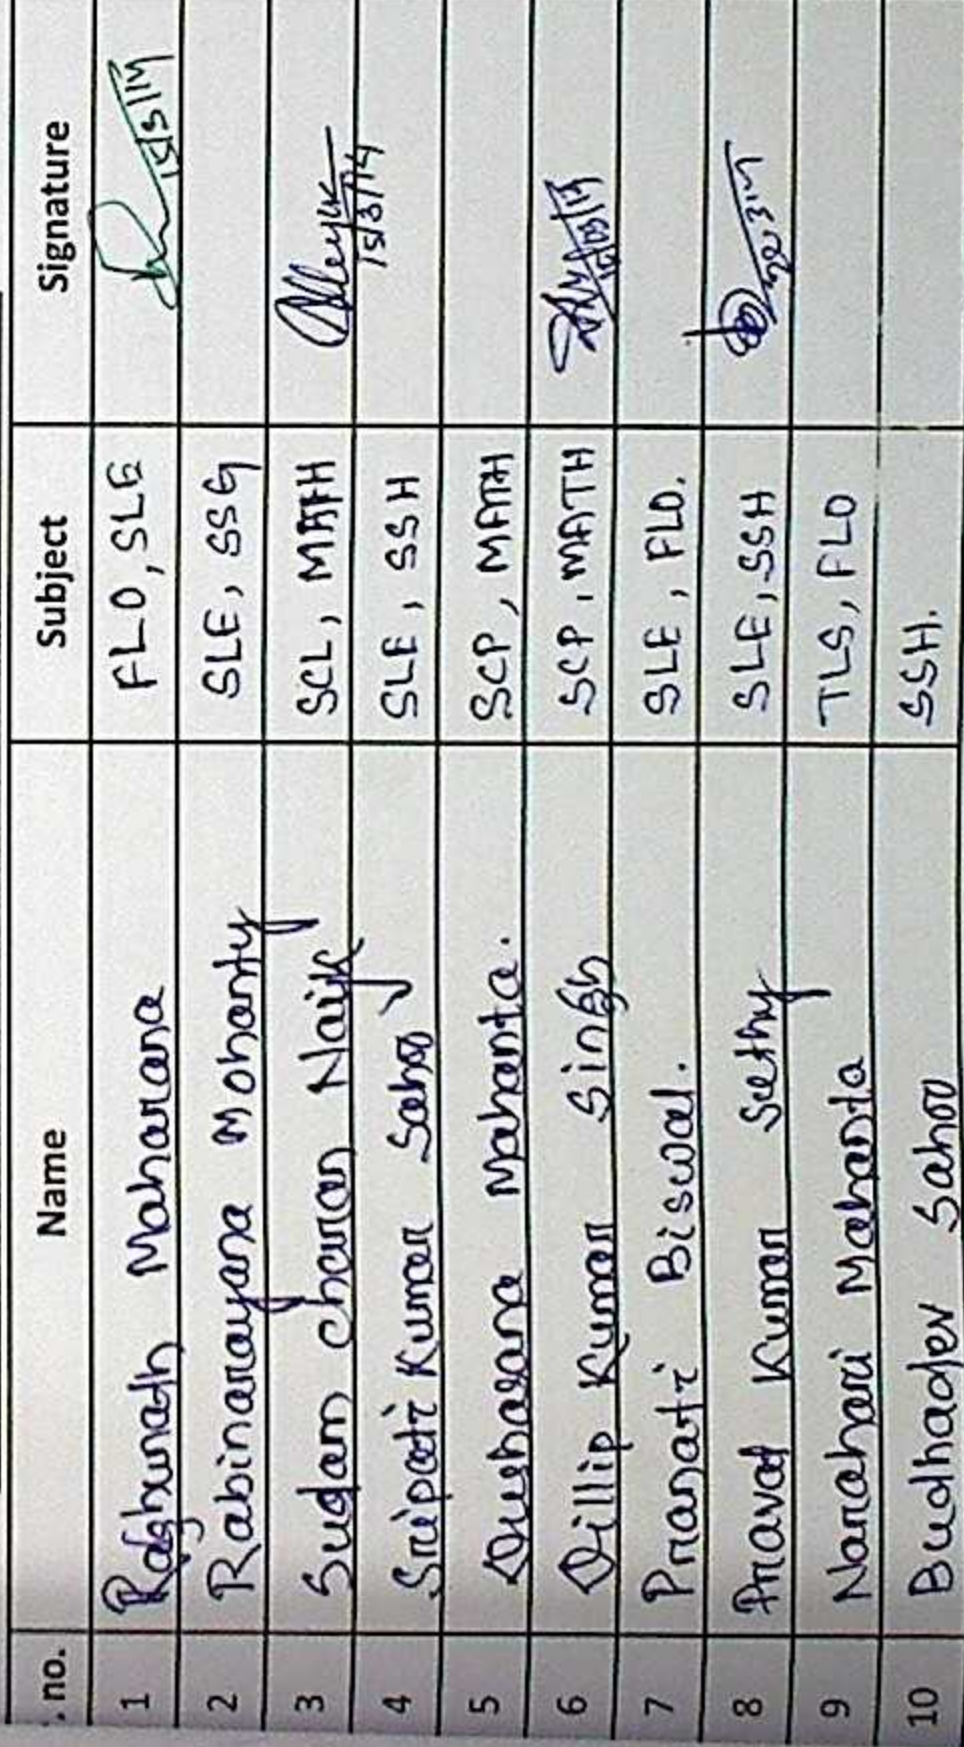 . no. Name Subject Signature
1 Raghunath Maharana FLO, SLE 15/3/14
2 Rabinarayana Mohanty SLE, SSG
3 Sudam Charan Naik SCL, MATH 15/3/14
4 Sripati Kumar Sahoo SLE, SSH
5 Dushasana Mahanta. SCP, MATH
6 Dillip Kumar Singh SCP, MATH 15/03/14
7 Pranati Biswal. SLE, FLO.
8 Pravat Kumar Sethy SLE, SSH
9 Narahari Mahanta TLS, FLO
10 Budhadev Sahoo SSH.